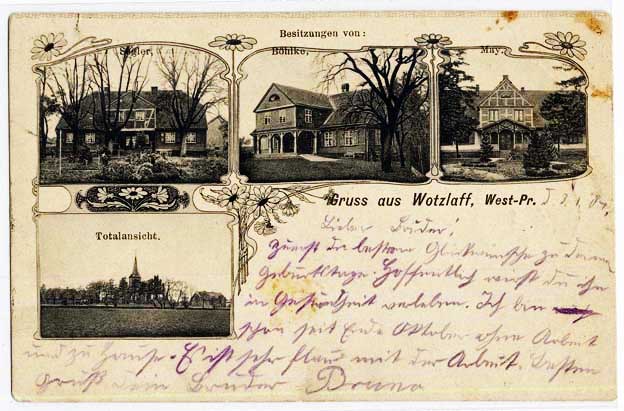 Besitzungen von:
Böhlke.
May.
Totalansicht.
Gruss aus Wotzlaff, West-Pr.
Lieber Bruder!
Zuerst die besten Glückwünsche zu deinem
Geburtstage. Hoffentlich wirst du ihn
in Gesundheit verleben. Ich bin
schon seit Ende Oktober ohne Arbeit
und zu Hause. Es ist sehr flau mit der Arbeit. Besten
Gruß Dein Bruder Bruno